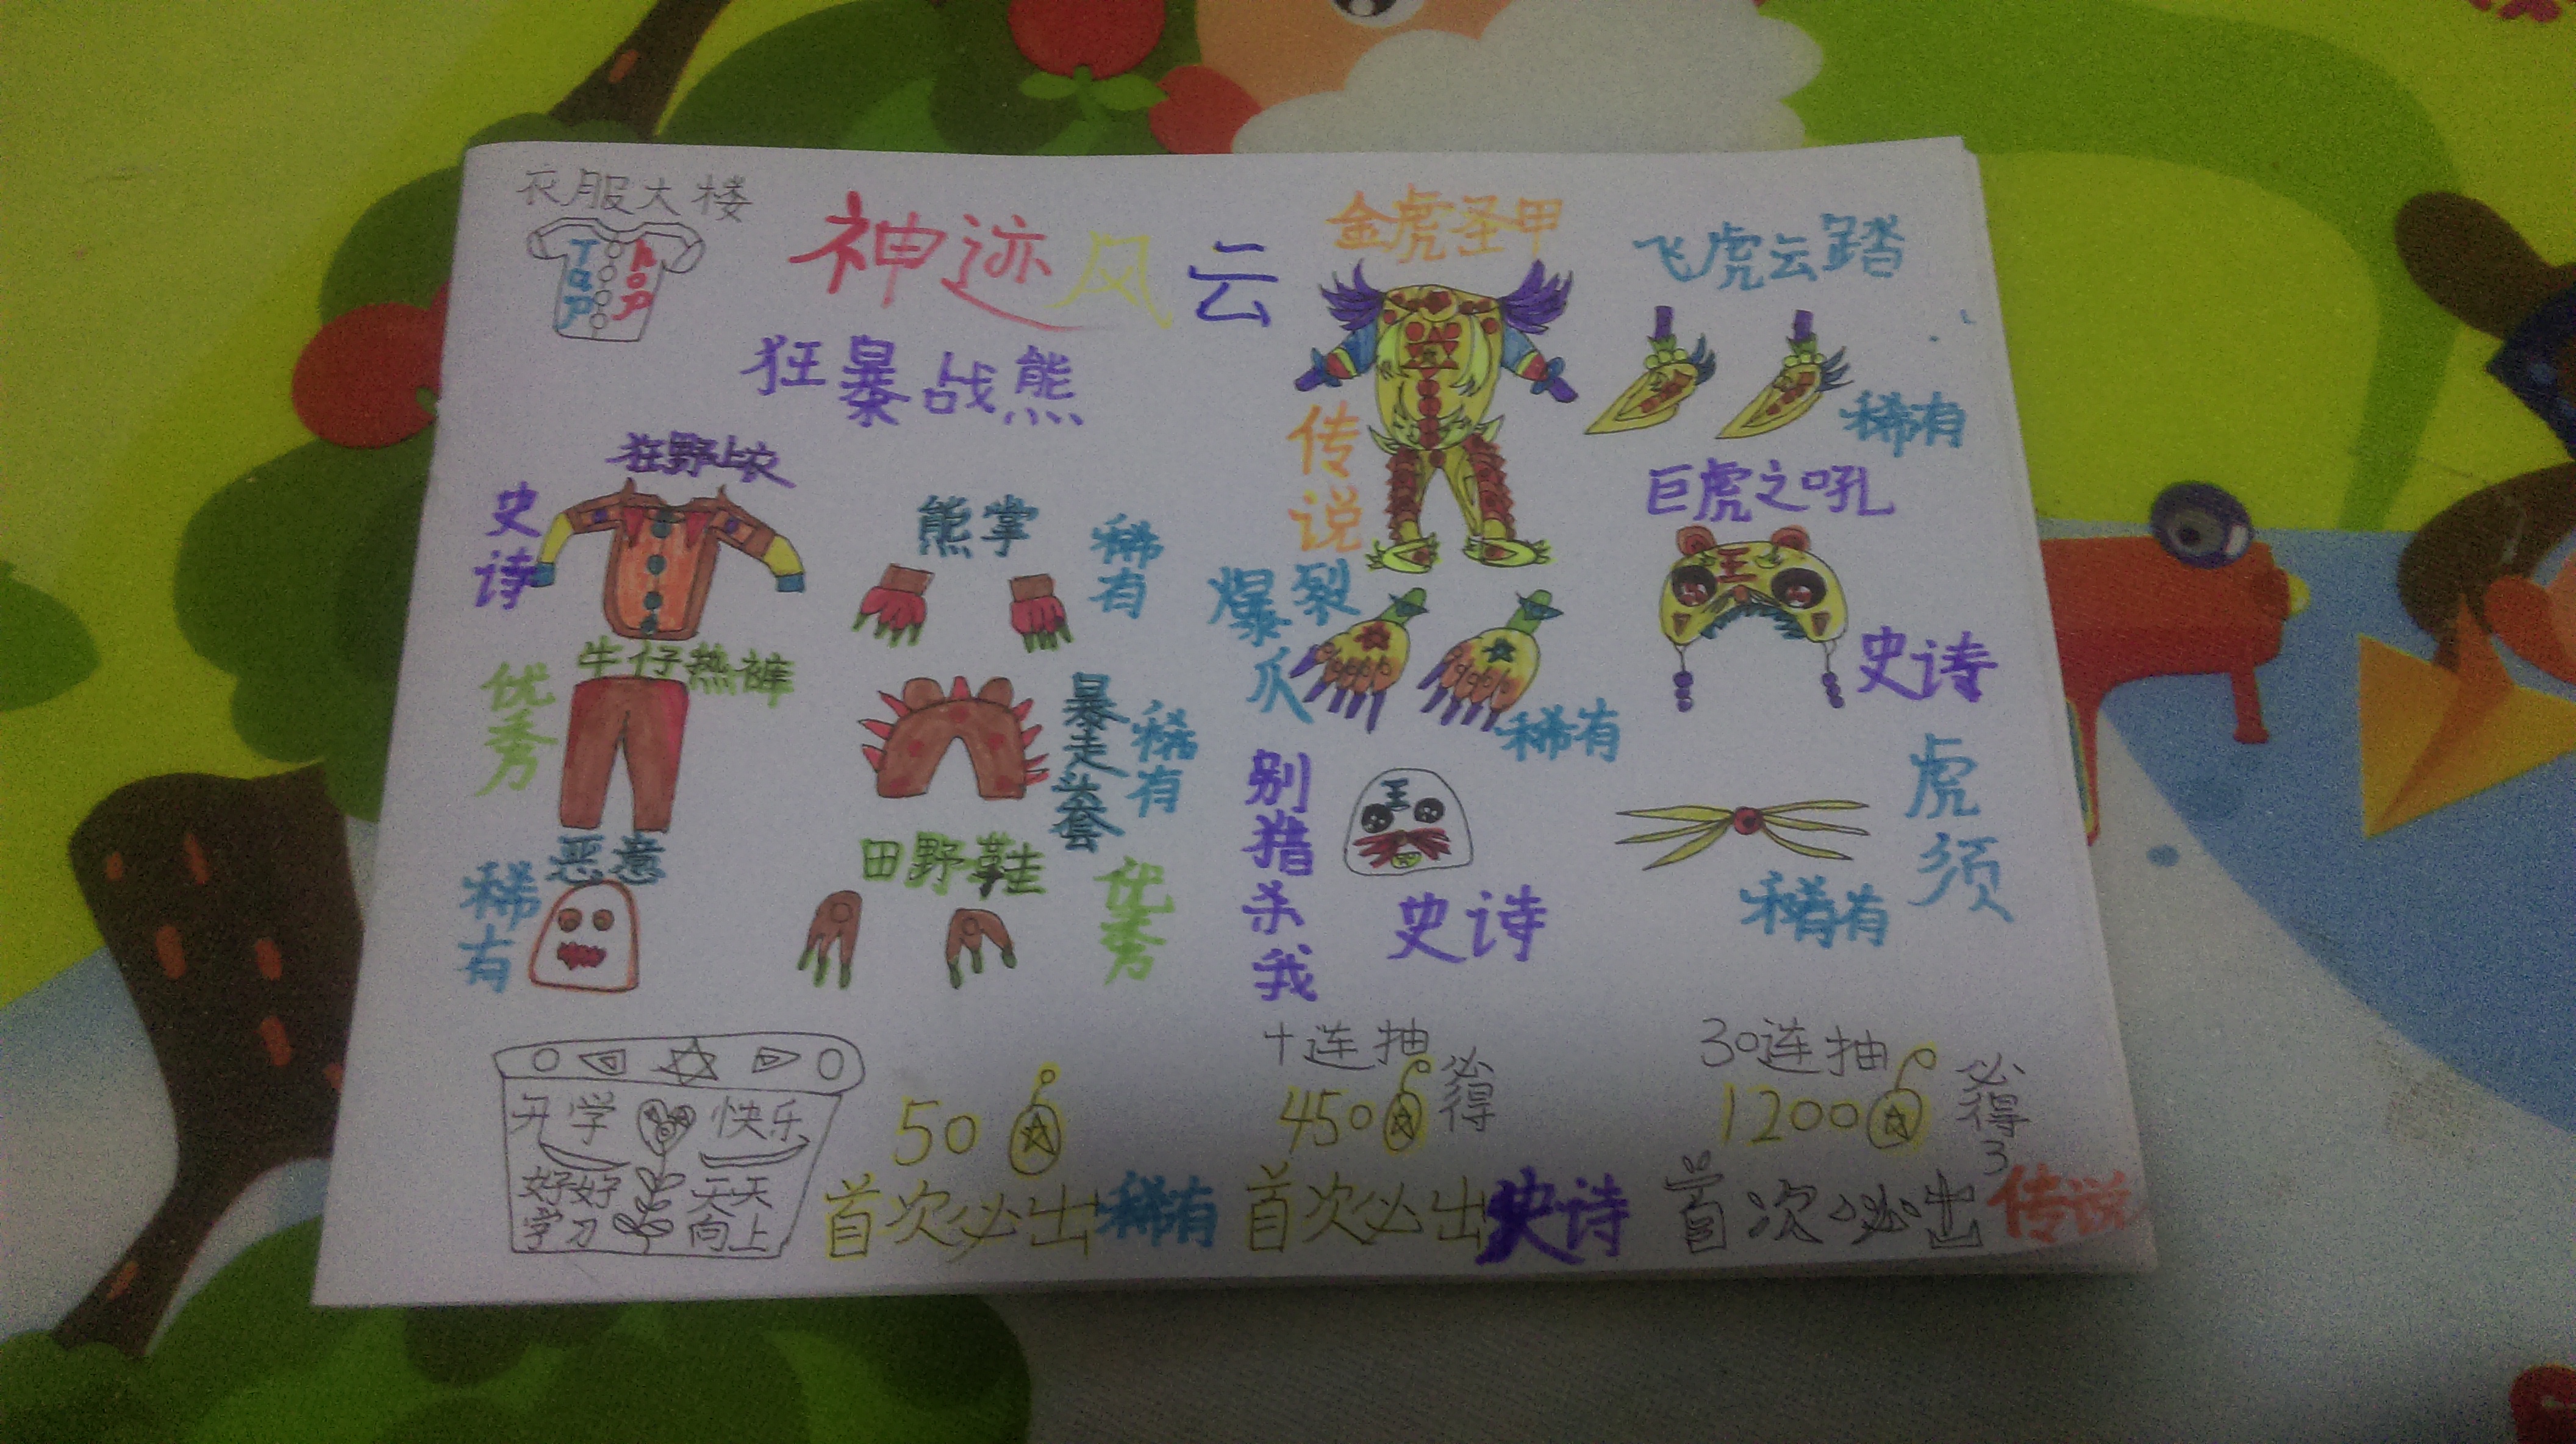 衣服大楼
Top
hop
神迹风云
狂暴战熊
金虎圣甲
传说
飞虎云踏
稀有
狂野上衣
史诗
熊掌
稀有
巨虎之吼
王
史诗
爆裂爪
稀有
牛仔热裤
优秀
暴走头套
稀有
别猎杀我
王
史诗
虎须
稀有
恶意
稀有
田野鞋
优秀
开学快乐
好好学习
天天向上
50
首次必出稀有
十连抽
450
必得
首次必出史诗
30连抽
1200
必得3
首次必出传说